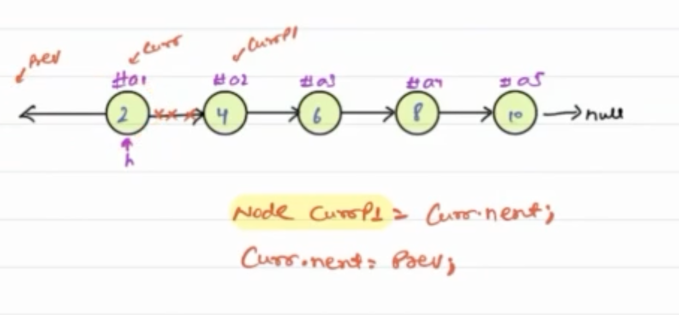 Prev
Curr
CurrP1
#a1 #a2 #a3 #a4 #a5
2 4 6 8 10 null
h
Node CurrP1 = Curr.next;
Curr.next = Prev;